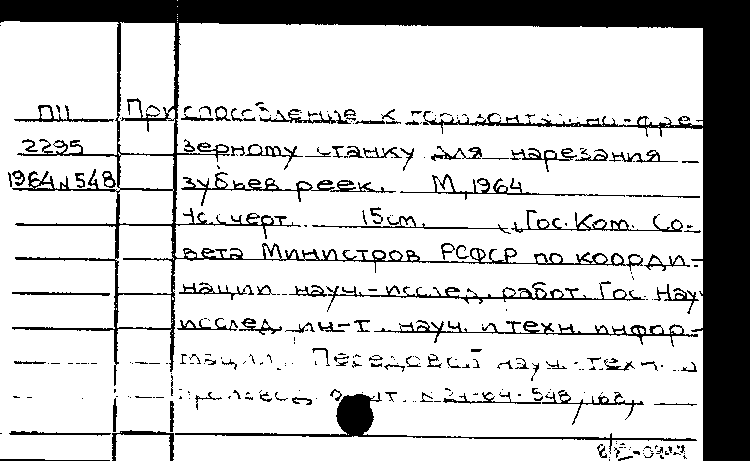 П11 Приспособление к горизонтально-фре-
2295 зерному станку для нарезания
1964 N548 зубьев реек. М, 1964
4с.счерт. 15см. Гос. Ком. Со-
вета Министров РСФСР по коорди-
нации науч.-исслед. работ. Гос. Науч
исслед. ин-т. науч. и техн. инфор-
мации. Передовой науч.-техн. и
N 24-64-548/168